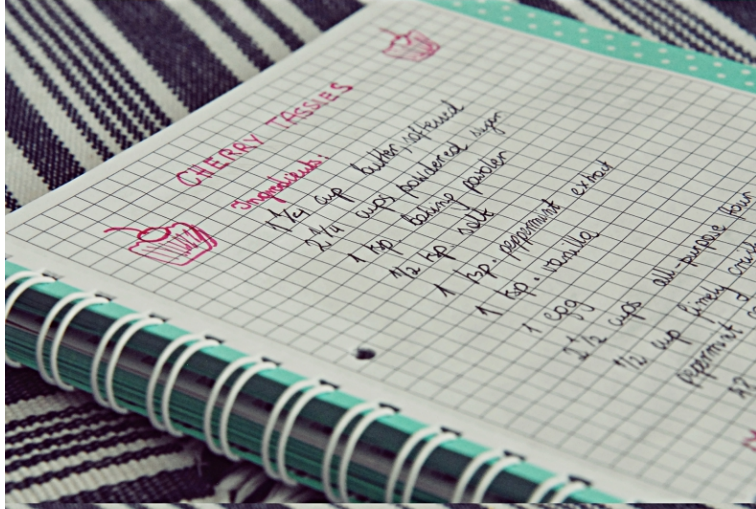 CHERRY TASSIES
Ingredients:
1 1/4 cup butter, softened
2 1/4 cups powdered sugar
1 tsp. baking powder
1/2 tsp salt
1 tsp. peppermint extract
1 tsp. vanilla
1 egg
2 1/2 cups all purpose flour
1/2 cup finely
peppermint